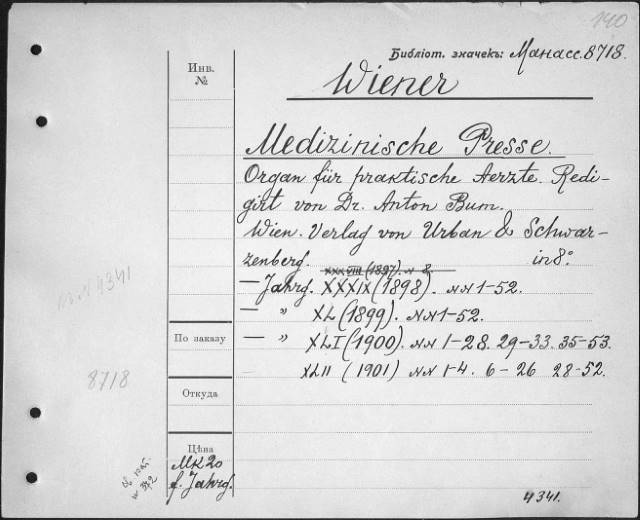 140
Библіот. значекъ: Манасс. 8718.
Инв.
№
Wiener
Medizinische Presse.
Organ für praktische Aerzte. Redi-
girt von Dr. Anton Bum.
Wien. Verlag von Urban & Schwar-
zenberg. in 8°.
XXXVIII (1897). N 8.
— Jahrg. XXXIX (1898). NN 1-52.
— " XL (1899). NN 1-52.
— " XLI (1900). NN 1-28. 29-33. 35-53.
XLII (1901) NN 1-4. 6-26 28-52.
4341
По заказу
8718
Откуда
Цѣна
MK 20
f. Jahrg.
4341.